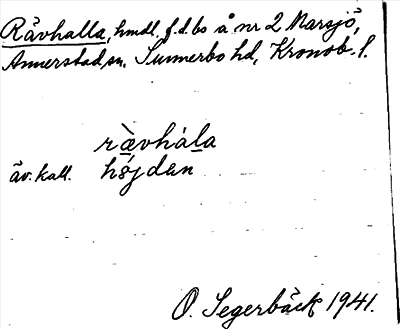 Rävhalla, hmdl. f.d. bs å nr 2 Marsjö,
Annerstad sn. Sunnerbo hd, Kronob. l.
ràvhála
äv. kall. höjdan
O. Segerbäck 1941.